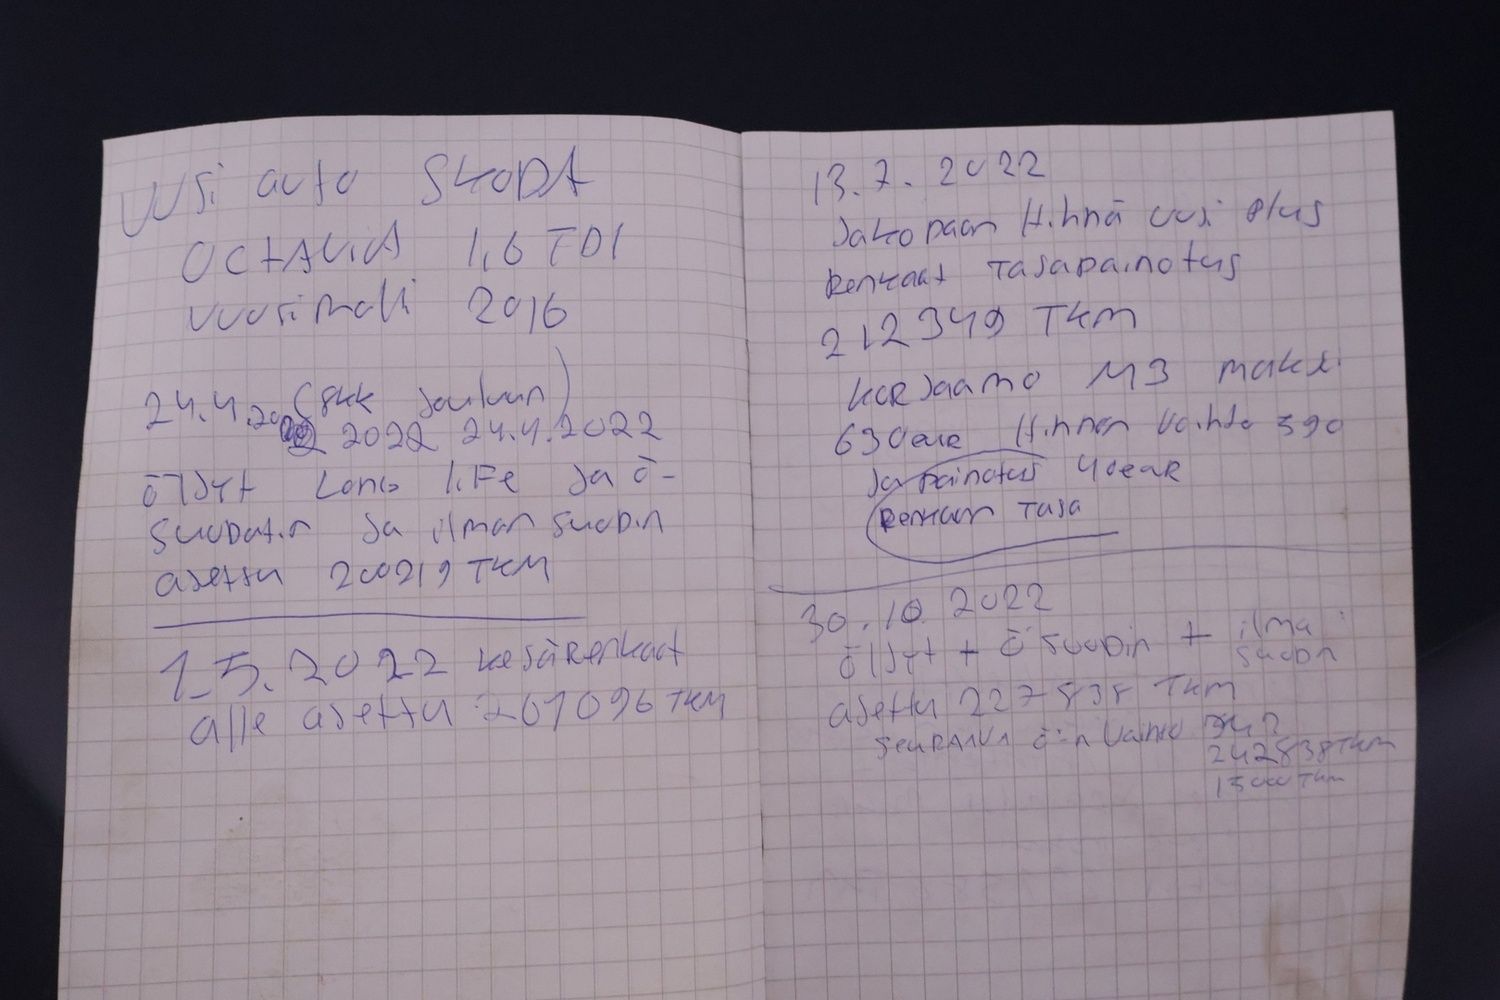 UUSi auto SKODA
OCTAVIA 1,6 TDI
vuosimalli 2016
24.4.20 (8kk Jouluun)
2022 24.4.2022
öljyt Long liFe ja ö-
suodatin ja ilman suodin
asettu 200219 TKM
1.5.2022 kesäRenkaat
alle asettu 201096 TKM
13.7.2022
Jakopään Hihna uusi plus
Renkaat Tasapainotus
212349 TKM
KORJaamo M3 maksi
630eur Hihnan vaihto 390
ja painotus 40eur
Renkaan Tasa
30.10.2022
öljyt + ö suodin + ilma
suodin
asettu 227838 TKM
SEURAAVA ö:n vaihto
242838 TKM
15000 TKM